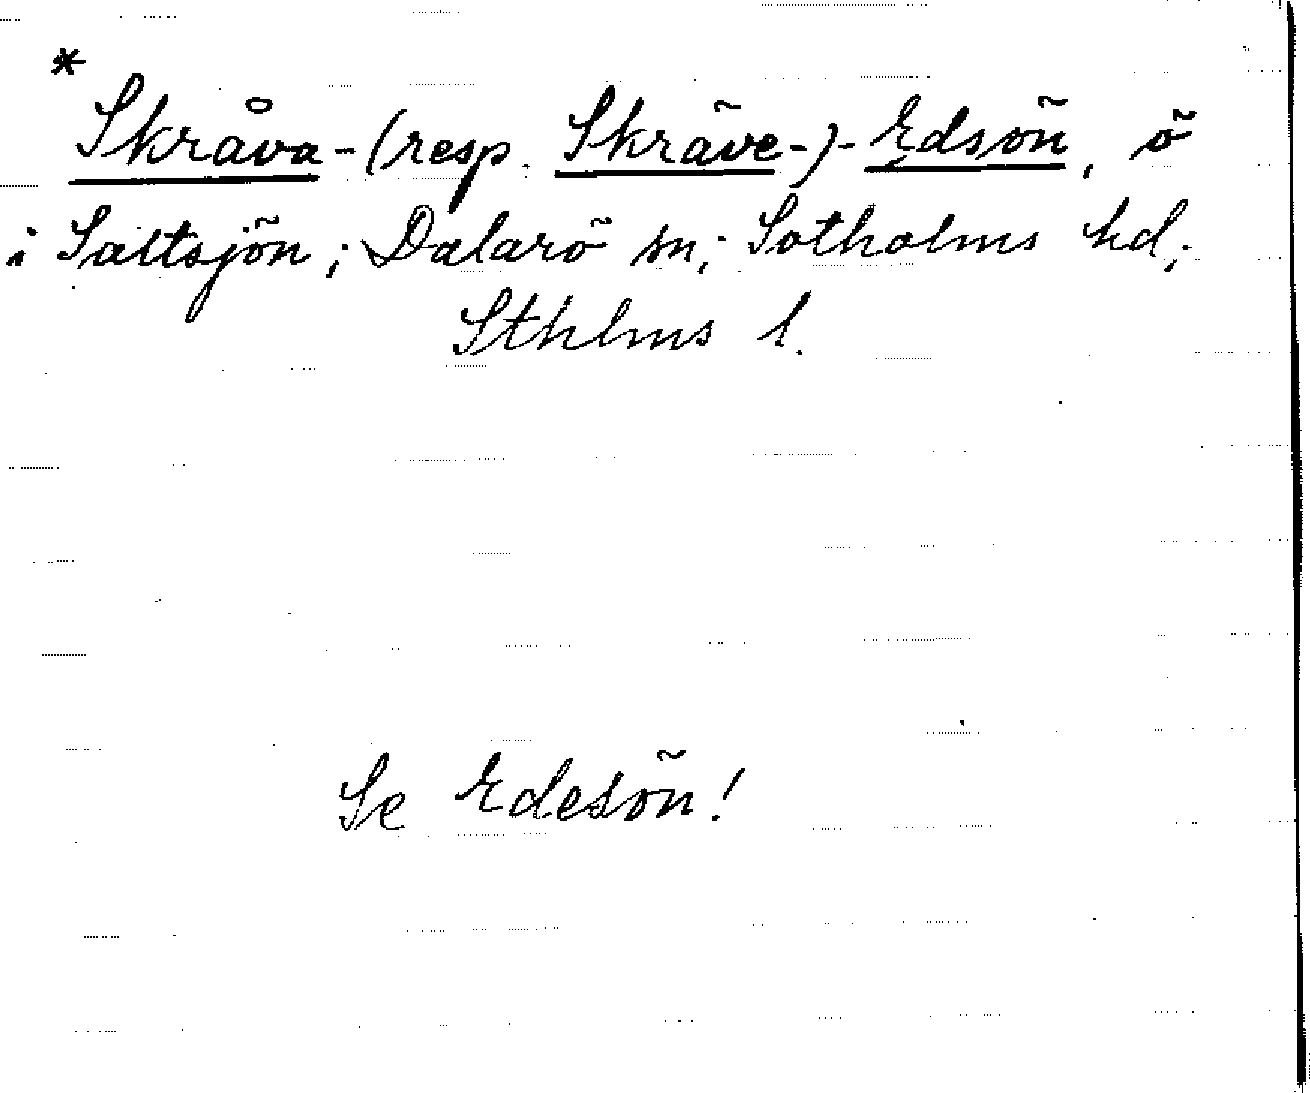 *
Skråva-(resp. Skräve-)-Edsön, ö
i Saltsjön; Dalarö sn; Sotholms hd;
Sthlms l.
Se Edesön!